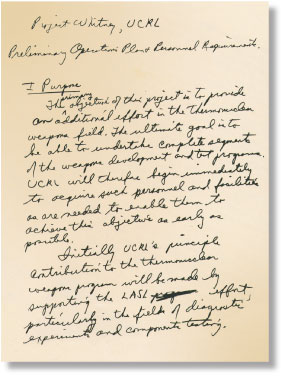 Project Whitney, UCRL
Preliminary Operations Plan & Personnel Requirements.
I Purpose
primary
The objective of this project is to provide
an additional effort in the thermonuclear
weapons field. The ultimate goal is to
be able to undertake complete segments
of the weapons development and test programs.
UCRL will therefore begin immediately
to acquire such personnel and facilities
as are needed to enable them to
achieve this objective as early as
possible.
Initially UCRL's principle
contribution to the thermonuclear
weapon program will be made by
supporting the LASL effort,
particularly in the fields of diagnostic
experiments and components testing.